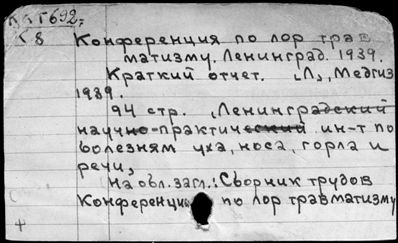 ККГ692.
К8
Конференция по лор трав
матизму. Ленинград. 1939.
Краткий отчет. "Л", Медгиз
1939.
94 стр. "Ленинградский
научно-практический ин-т по
болезням уха, носа, горла и
речи"
На обл. загл.: Сборник трудов
Конференции по лор травматизму